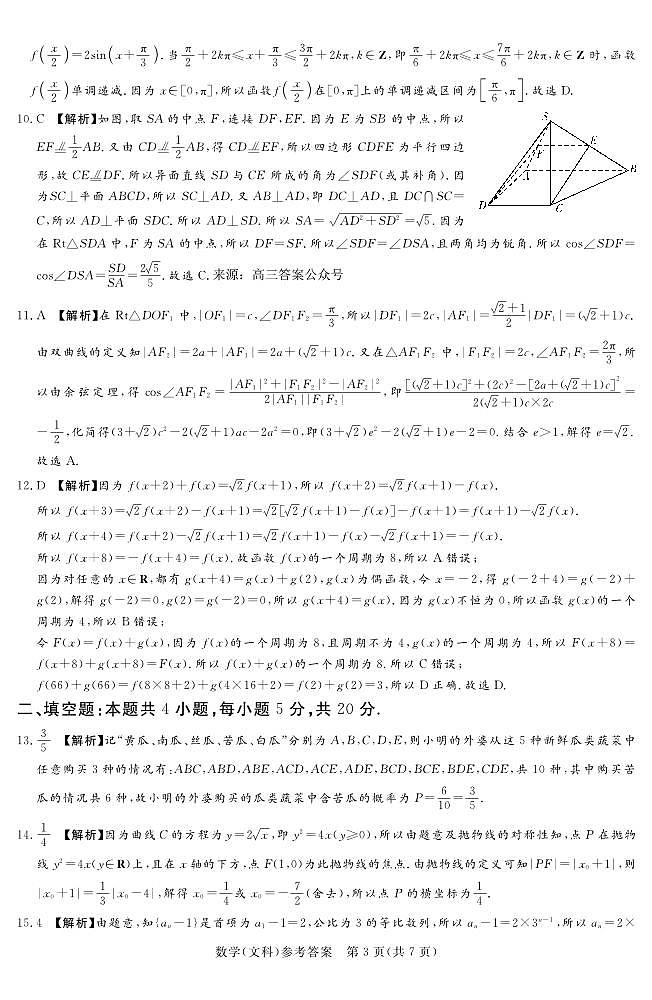 f(x/2)=2sin(x+π/3).当π/2+2kπ≤x+π/3≤3π/2+2kπ,k∈Z,即π/6+2kπ≤x≤7π/6+2kπ,k∈Z时,函数
f(x/2)单调递减.因为x∈[0,π],所以函数f(x/2)在[0,π]上的单调递减区间为[π/6,π].故选D.
10.C 【解析】如图,取SA的中点F,连接DF,EF.因为E为SB的中点,所以
EF⫽1/2AB.又由CD⫽1/2AB,得CD⫽EF,所以四边形CDFE为平行四边
形,故CE⫽DF.所以异面直线SD与CE所成的角为∠SDF(或其补角).因
为SC⊥平面ABCD,所以SC⊥AD.又AB⊥AD,即DC⊥AD,且DC∩SC=
C,所以AD⊥平面SDC.所以AD⊥SD.所以SA=√(AD²+SD²)=√5.因为
S
F
E
A
B
D
C
在Rt△SDA中,F为SA的中点,所以DF=SF.所以∠SDF=∠DSA,且两角均为锐角.所以cos∠SDF=
cos∠DSA=SD/SA=2√5/5.故选C.来源:高三答案公众号
11.A 【解析】在Rt△DOF₁中,|OF₁|=c,∠DF₁F₂=π/3,所以|DF₁|=2c,|AF₁|=(√2+1)/2|DF₁|=(√2+1)c.
由双曲线的定义知|AF₂|=2a+|AF₁|=2a+(√2+1)c.又在△AF₁F₂中,|F₁F₂|=2c,∠AF₁F₂=2π/3,所
以由余弦定理,得cos∠AF₁F₂=(|AF₁|²+|F₁F₂|²-|AF₂|²)/(2|AF₁||F₁F₂|),即([(√2+1)c]²+(2c)²-[2a+(√2+1)c]²)/(2(√2+1)c×2c)=
-1/2,化简得(3+√2)c²-2(√2+1)ac-2a²=0,即(3+√2)e²-2(√2+1)e-2=0.结合e>1,解得e=√2.
故选A.
12.D 【解析】因为f(x+2)+f(x)=√2f(x+1),所以f(x+2)=√2f(x+1)-f(x).
所以f(x+3)=√2f(x+2)-f(x+1)=√2[√2f(x+1)-f(x)]-f(x+1)=f(x+1)-√2f(x).
所以f(x+4)=f(x+2)-√2f(x+1)=√2f(x+1)-f(x)-√2f(x+1)=-f(x).
所以f(x+8)=-f(x+4)=f(x).故函数f(x)的一个周期为8,所以A错误;
因为对任意的x∈R,都有g(x+4)=g(x)+g(2),g(x)为偶函数,令x=-2,得g(-2+4)=g(-2)+
g(2),解得g(-2)=0,g(2)=g(-2)=0,所以g(x+4)=g(x).因为g(x)不恒为0,所以函数g(x)的一个
周期为4,所以B错误;
令F(x)=f(x)+g(x),因为f(x)的一个周期为8,且周期不为4,g(x)的一个周期为4,所以F(x+8)=
f(x+8)+g(x+8)=F(x).所以f(x)+g(x)的一个周期为8.所以C错误;
f(66)+g(66)=f(8×8+2)+g(4×16+2)=f(2)+g(2)=3,所以D正确.故选D.
二、填空题:本题共4小题,每小题5分,共20分.
13.3/5 【解析】记“黄瓜、南瓜、丝瓜、苦瓜、白瓜”分别为A,B,C,D,E,则小明的外婆从这5种新鲜瓜类蔬菜中
任意购买3种的情况有:ABC,ABD,ABE,ACD,ACE,ADE,BCD,BCE,BDE,CDE,共10种,其中购买苦
瓜的情况共6种,故小明的外婆购买的瓜类蔬菜中含苦瓜的概率为P=6/10=3/5.
14.1/4 【解析】因为曲线C的方程为y=2√x,即y²=4x(y≥0),所以由题意及抛物线的对称性知,点P在抛物
线y²=4x(y∈R)上,且在x轴的下方,点F(1,0)为此抛物线的焦点.由抛物线的定义可知|PF|=|x₀+1|,则
|x₀+1|=1/3|x₀-4|,解得x₀=1/4或x₀=-7/2(舍去),所以点P的横坐标为1/4.
15.4 【解析】由题意,知{aₙ-1}是首项为a₁-1=2,公比为3的等比数列,所以aₙ-1=2×3ⁿ⁻¹,所以aₙ=2×
数学(文科)参考答案 第3页(共7页)